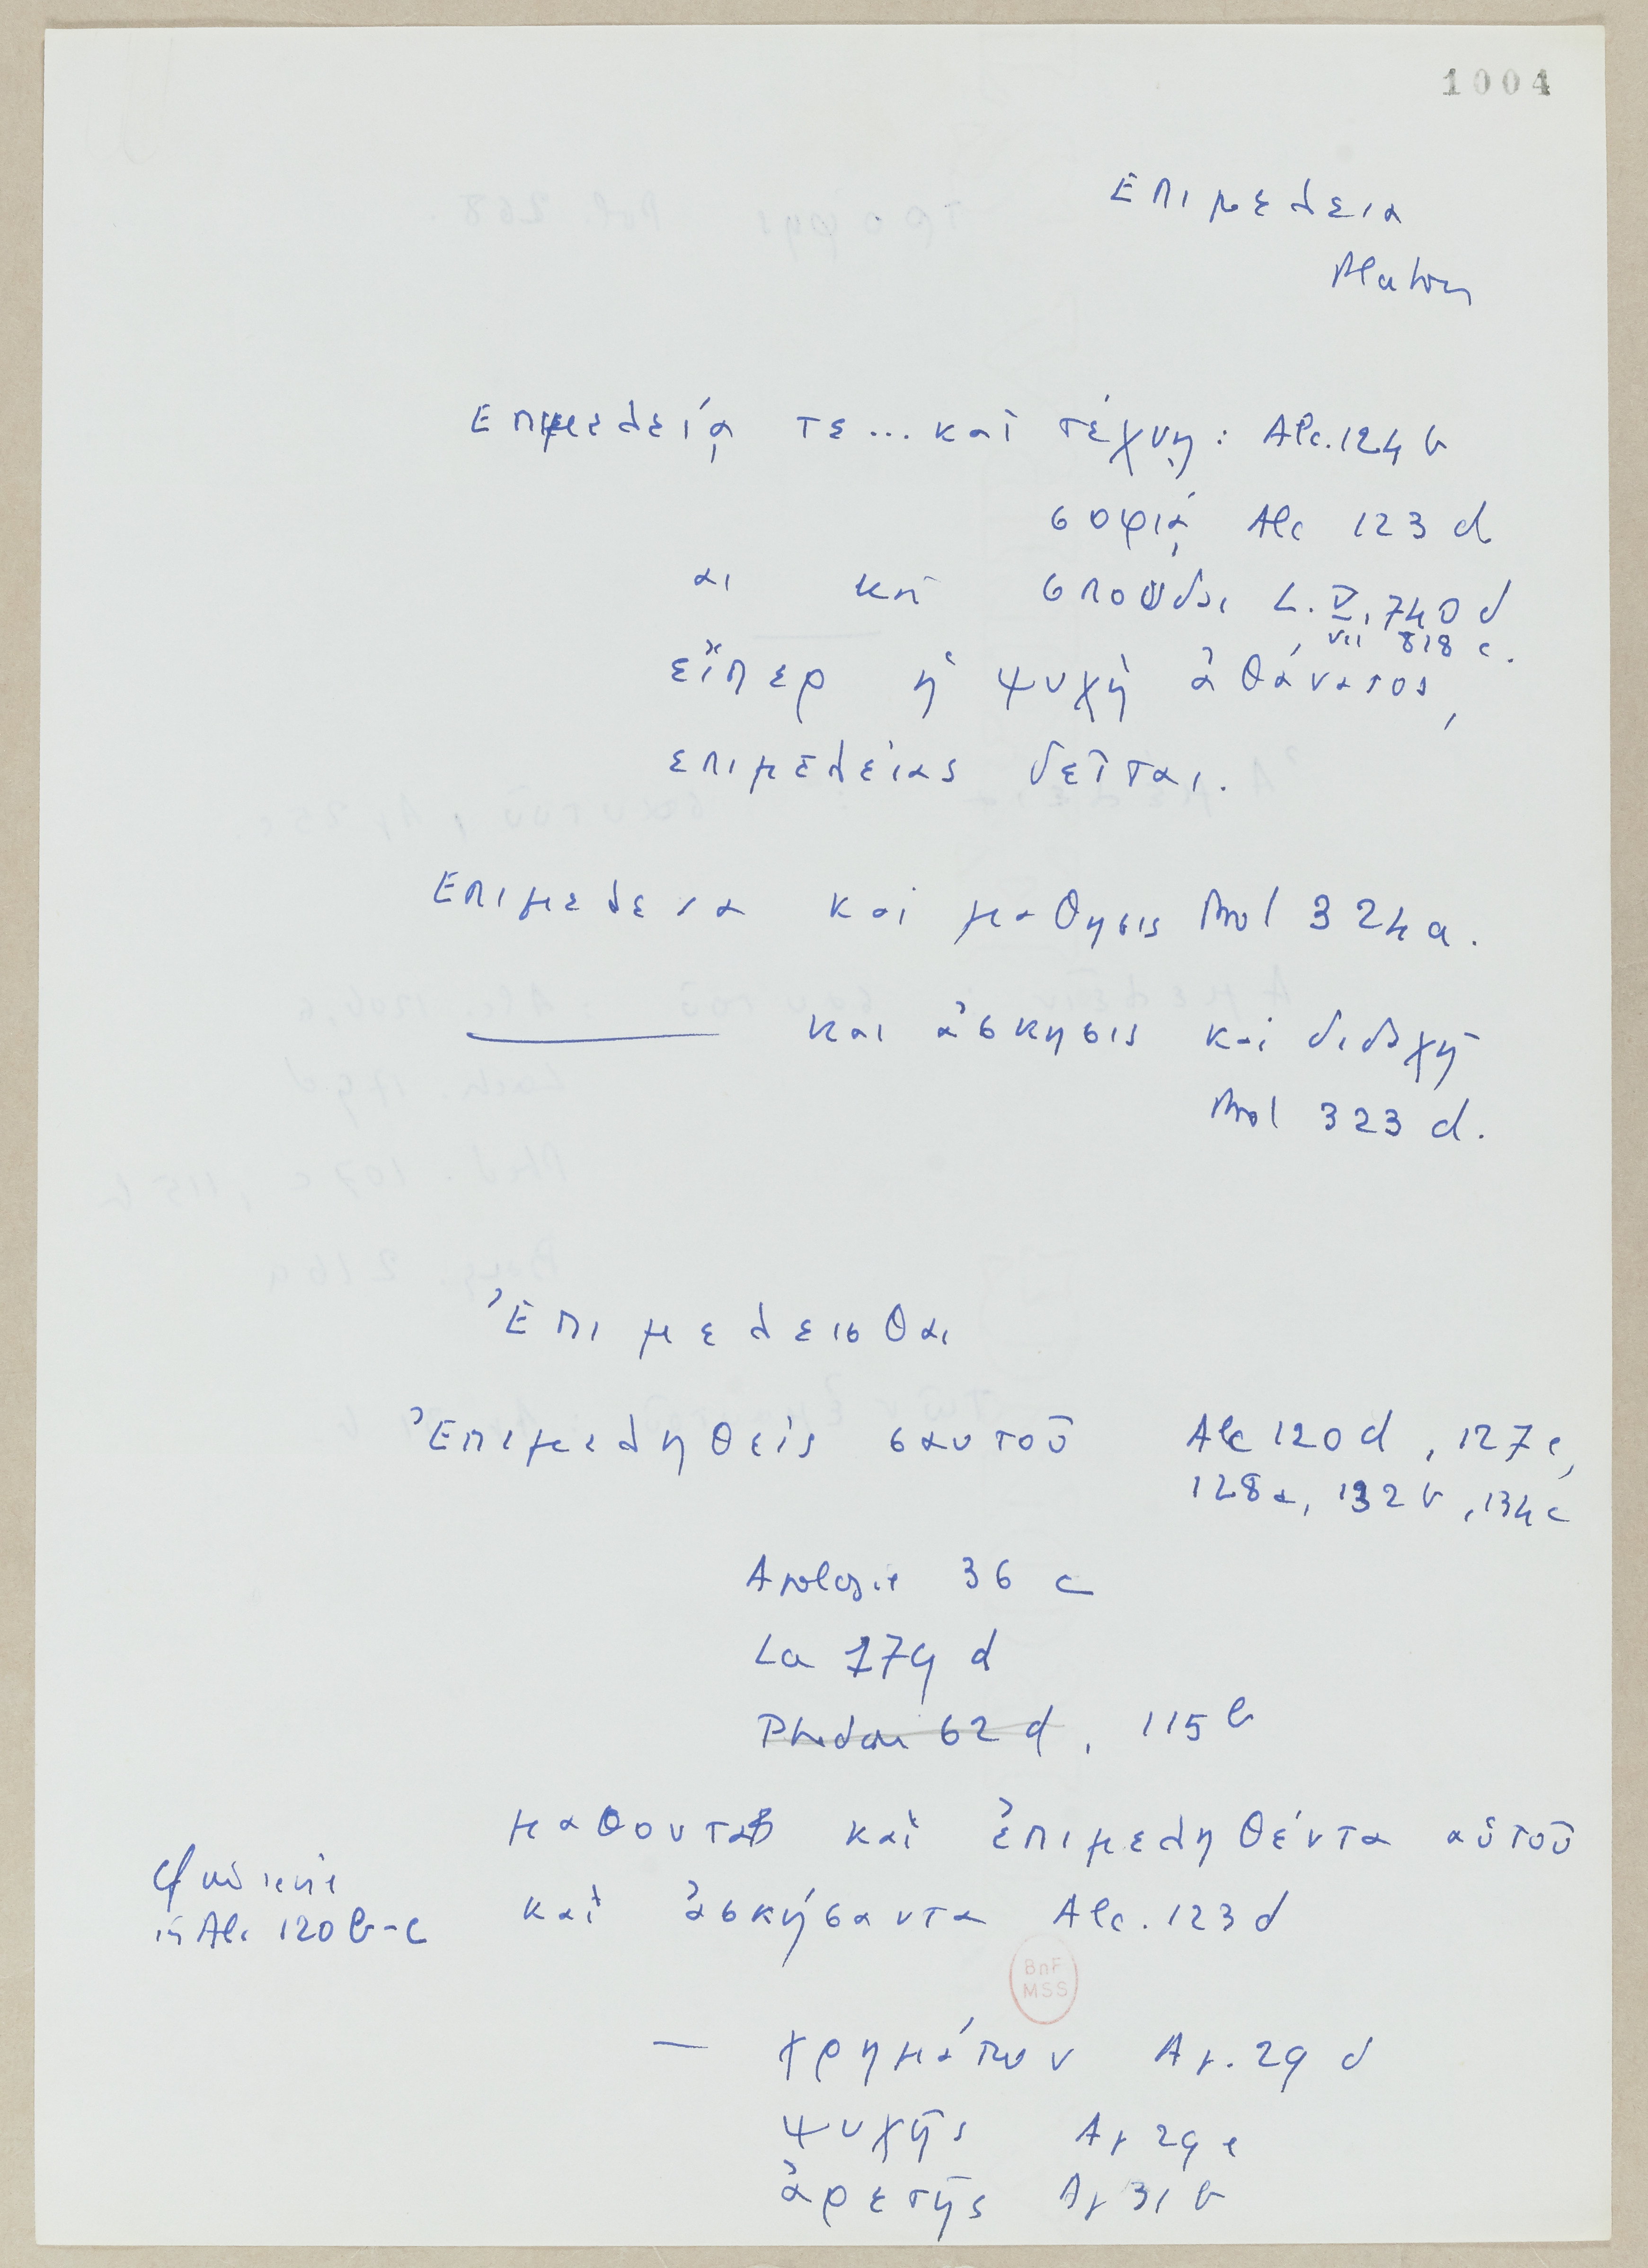 1004
Επιμελεια
Platon
Επιμελείᾳ τε... καὶ τέχνῃ : Alc. 124 b
σοφίᾳ Alc 123 d
αι και σπουδαι L. V, 740 d
VII 818 c.
εἴπερ ἡ ψυχὴ ἀθάνατος,
επιμελείας δεῖται.
Επιμελεια και μαθησις Prot 324 a.
και ἀσκησις και διδαχη
Prot 323 d.
Ἐπιμελεισθαι
Ἐπιμεληθείς σαυτοῦ Alc 120 d, 127 e,
128 a, 132 b, 134 c
Apologie 36 c
La 179 d
Phédon 62 d, 115 b
μαθοντα καὶ ἐπιμεληθέντα αὑτοῦ
in Alc 120 b-c
καὶ ἀσκήσαντα Alc. 123 d
BnF
MSS
— χρημάτων Ap. 29 d
ψυχῆς Ap 29 e
ἀρετῆς Ap 31 b